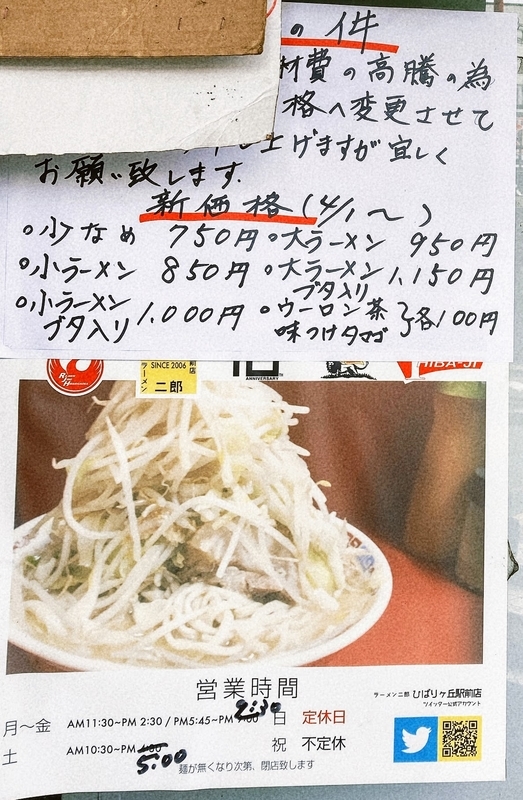 の件
材費の高騰の為
格へ変更させて
上げますが宜しく
お願い致します.
新価格(4/1〜)
○小なめ 750円 ○大ラーメン 950円
○小ラーメン 850円 ○大ラーメン ブタ入り 1.150円
○小ラーメン ブタ入り 1.000円 ○ウーロン茶 味つけタマゴ 各100円
SINCE 2006
ラーメン 二郎
ANNIVERSARY
営業時間
月〜金 AM11:30~PM 2:30 / PM5:45~PM 2:30 日 定休日
土 AM10:30~PM 5:00 祝 不定休
麺が無くなり次第、閉店致します
ラーメン二郎 ひばりヶ丘駅前店
ツイッター公式アカウント